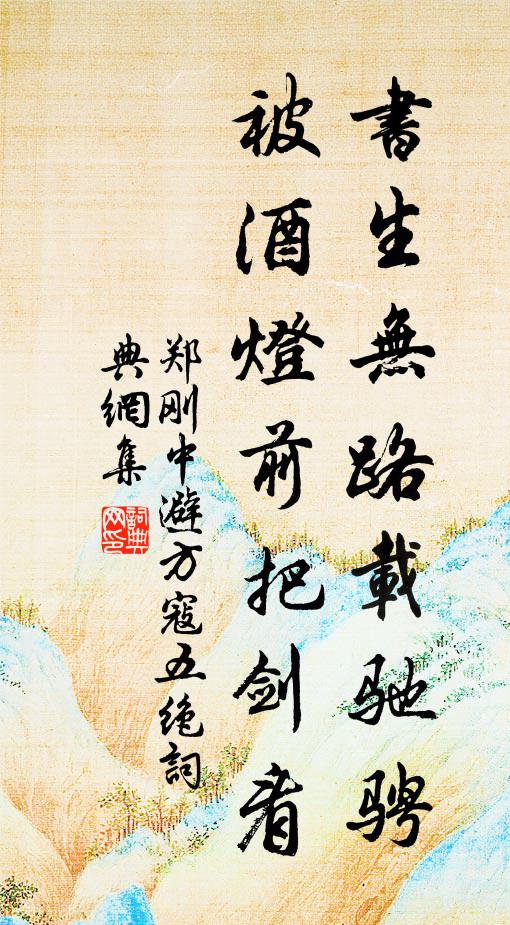 書生無路載驰骋
被酒燈前把剑看
郑刚中避方寇五绝詞
典網集
詞典网印